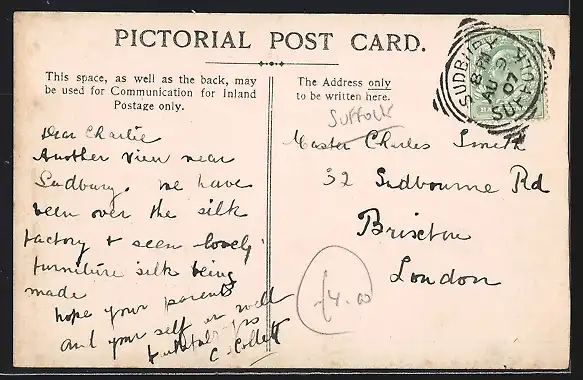 PICTORIAL POST CARD.
This space, as well as the back, may
be used for Communication for Inland
Postage only.
The Address only
to be written here.
SUDBURY
8 PM
AU 9
07
SUFFOLK
Suffolk
Dear Charlie
Another view near
Sudbury. We have
been over the silk
factory & seen lovely
furniture silk being
made
hope your parents
and your self are well
C. Collett
Master Charles Smith
32 Sudbourne Rd
Brixton
London
£4.00